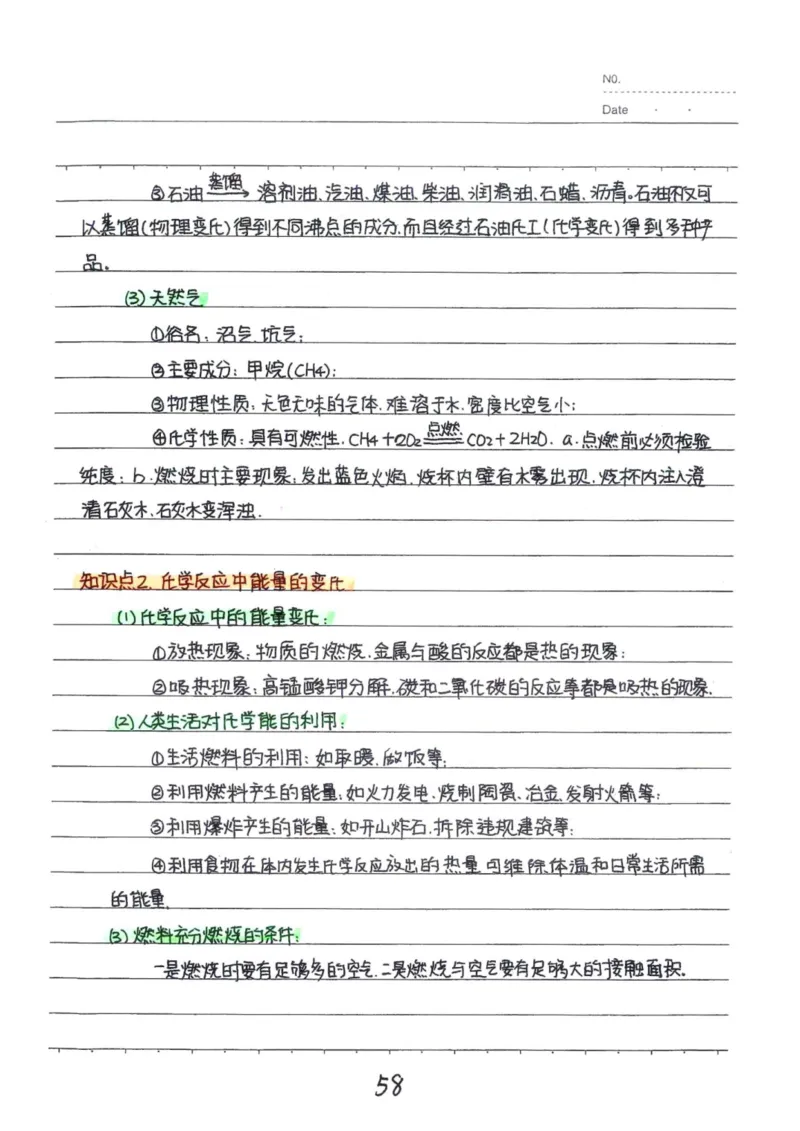 NO.
Date
③石油 蒸馏→ 溶剂油、汽油、煤油、柴油、润滑油、石蜡、沥青。石油不仅可
以蒸馏(物理变化)得到不同沸点的成分,而且经过石油化工(化学变化)得到多种产
品。
(3)天然气
①俗名:沼气、坑气;
②主要成分:甲烷(CH4);
③物理性质:无色无味的气体,难溶于水,密度比空气小;
④化学性质:具有可燃性,CH4+2O2 点燃 CO2+2H2O. a.点燃前必须检验
纯度;b.燃烧时主要现象:发出蓝色火焰,烧杯内壁有水雾出现,烧杯内注入澄
清石灰水,石灰水变浑浊.
知识点2.化学反应中能量的变化
(1)化学反应中的能量变化:
①放热现象:物质的燃烧,金属与酸的反应都是热的现象;
②吸热现象:高锰酸钾分解,碳和二氧化碳的反应等都是吸热的现象.
(2)人类生活对化学能的利用:
①生活燃料的利用:如取暖,做饭等;
②利用燃料产生的能量:如火力发电、烧制陶瓷、冶金、发射火箭等;
③利用爆炸产生的能量:如开山炸石,拆除违规建筑等;
④利用食物在体内发生化学反应放出的热量可维除体温和日常生活所需
的能量.
(3)燃料充分燃烧的条件:
一是燃烧时要有足够多的空气,二是燃烧与空气要有足够大的接触面积.
58